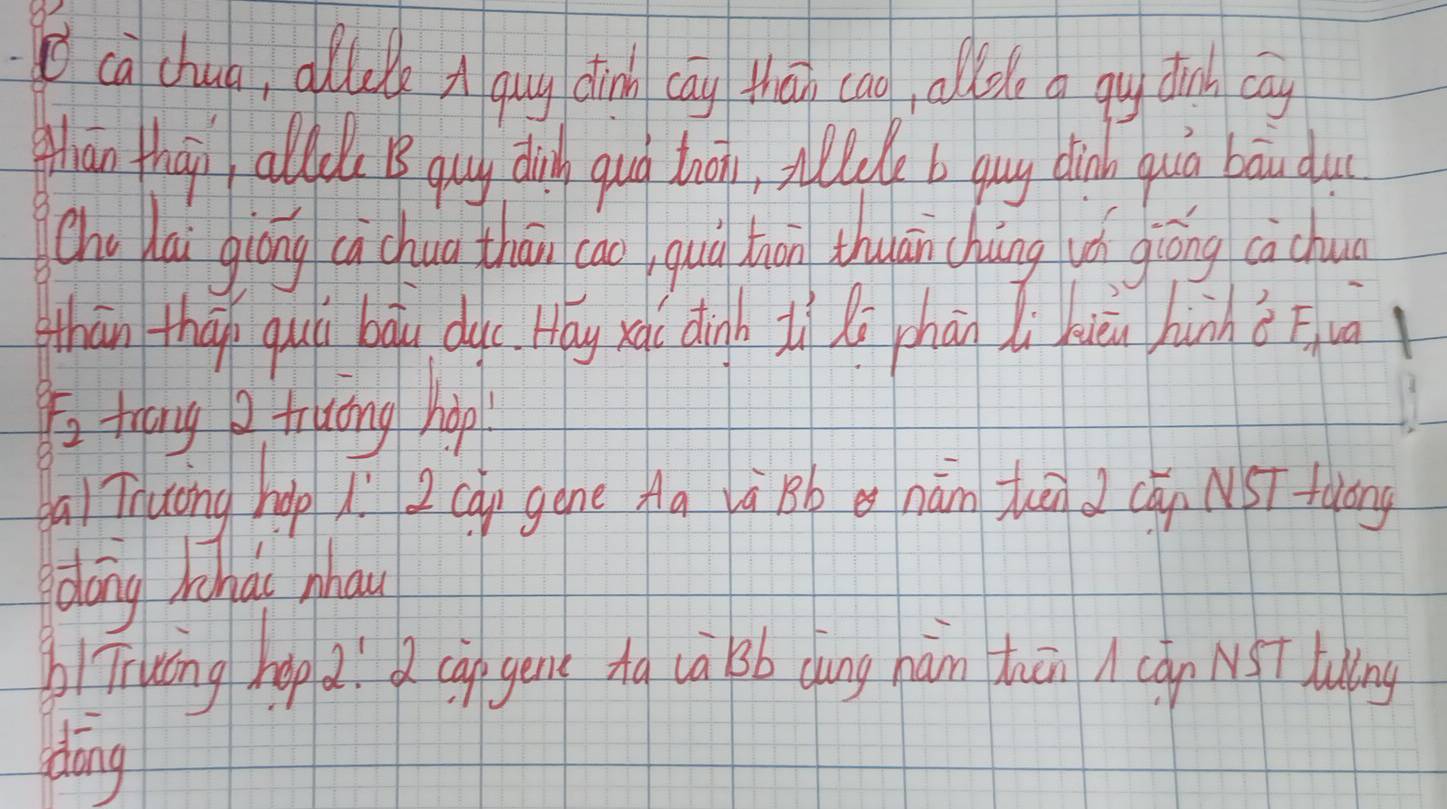 - Ở cà chua, allele A quy định cây thân cao, allele a quy định cây
thân thấp, allele B quy định quả tròn, Allele b quy định quả bầu dục.
Cho lai giống cà chua thân cao, quả tròn thuần chủng với giống cà chua
thân thấp quả bầu dục. Hãy xác định tỉ lệ phân li kiểu hình ở F1 và
F2 trong 2 trường hợp:
a) Trường hợp 1: 2 cặp gene Aa và Bb nằm trên 2 cặp NST tương
đồng khác nhau
b) Trường hợp 2: 2 cặp gene Aa và Bb cùng nằm trên 1 cặp NST tương
đồng